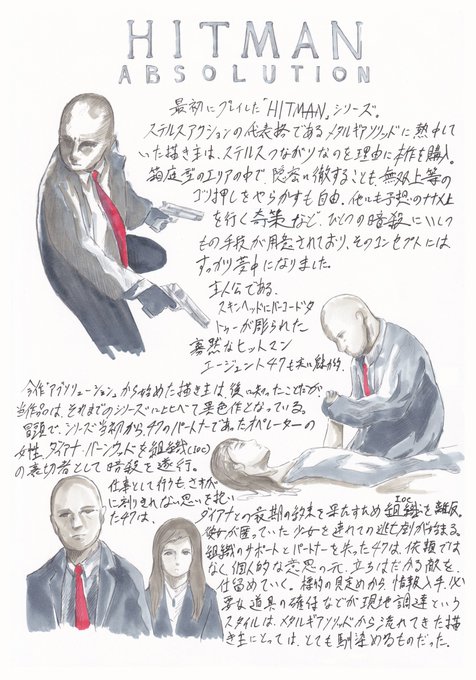 HITMAN
ABSOLUTION
最初にプレイした"HITMAN"シリーズ。
ステルスアクションの代表格であるメタルギアソリッドに熱中して
いた描き主は、ステルスつながりなのを理由に本作を購入。
箱庭型のエリアの中で隠密に徹することも、無双上等の
ゴリ押しをやらかすも自由。他にも予想のナナメ上
を行く奇策など、ひとつの暗殺にいくつ
もの手段が用意されており、そのコンセプトには
すっかり夢中になりました。
主人公である、
スキンヘッドにバーコードタ
トゥーが彫られた
寡黙なヒットマン
エージェント47も
今作"アブソリューション"から始めた描き主は、後に知ったことだが
当作品は、それまでのシリーズに比べて異色作となっている。
冒頭で、シリーズ当初から47のパートナーであったオペレーターの
女性、ダイアナ・バーンウッドを組織(ICA)
の裏切者として暗殺を遂行。
仕事として行うもさすが
に割りきれない思いを抱い
た47は、
ダイアナとの最期の約束を果たすため組織を離反。
彼女が匿っていた少女を連れての逃亡劇が始まる。
組織のサポートとパートナーを失った47は、依頼では
なく、個人的な意思の元、立ちはだかる敵を、
仕留めていく。標的の見定めから、情報入手、必
要な道具の確保などが現地調達という
スタイルは、メタルギアソリッドから流れてきた描
き主にとっては、とても馴染めるものだった。